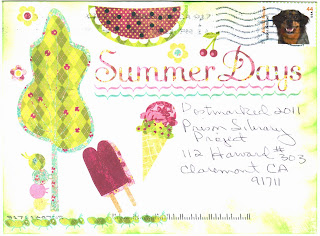 44
Summer Days
Postmarked 2011
Prison Library
Project
112 Harvard #303
Claremont CA
91711